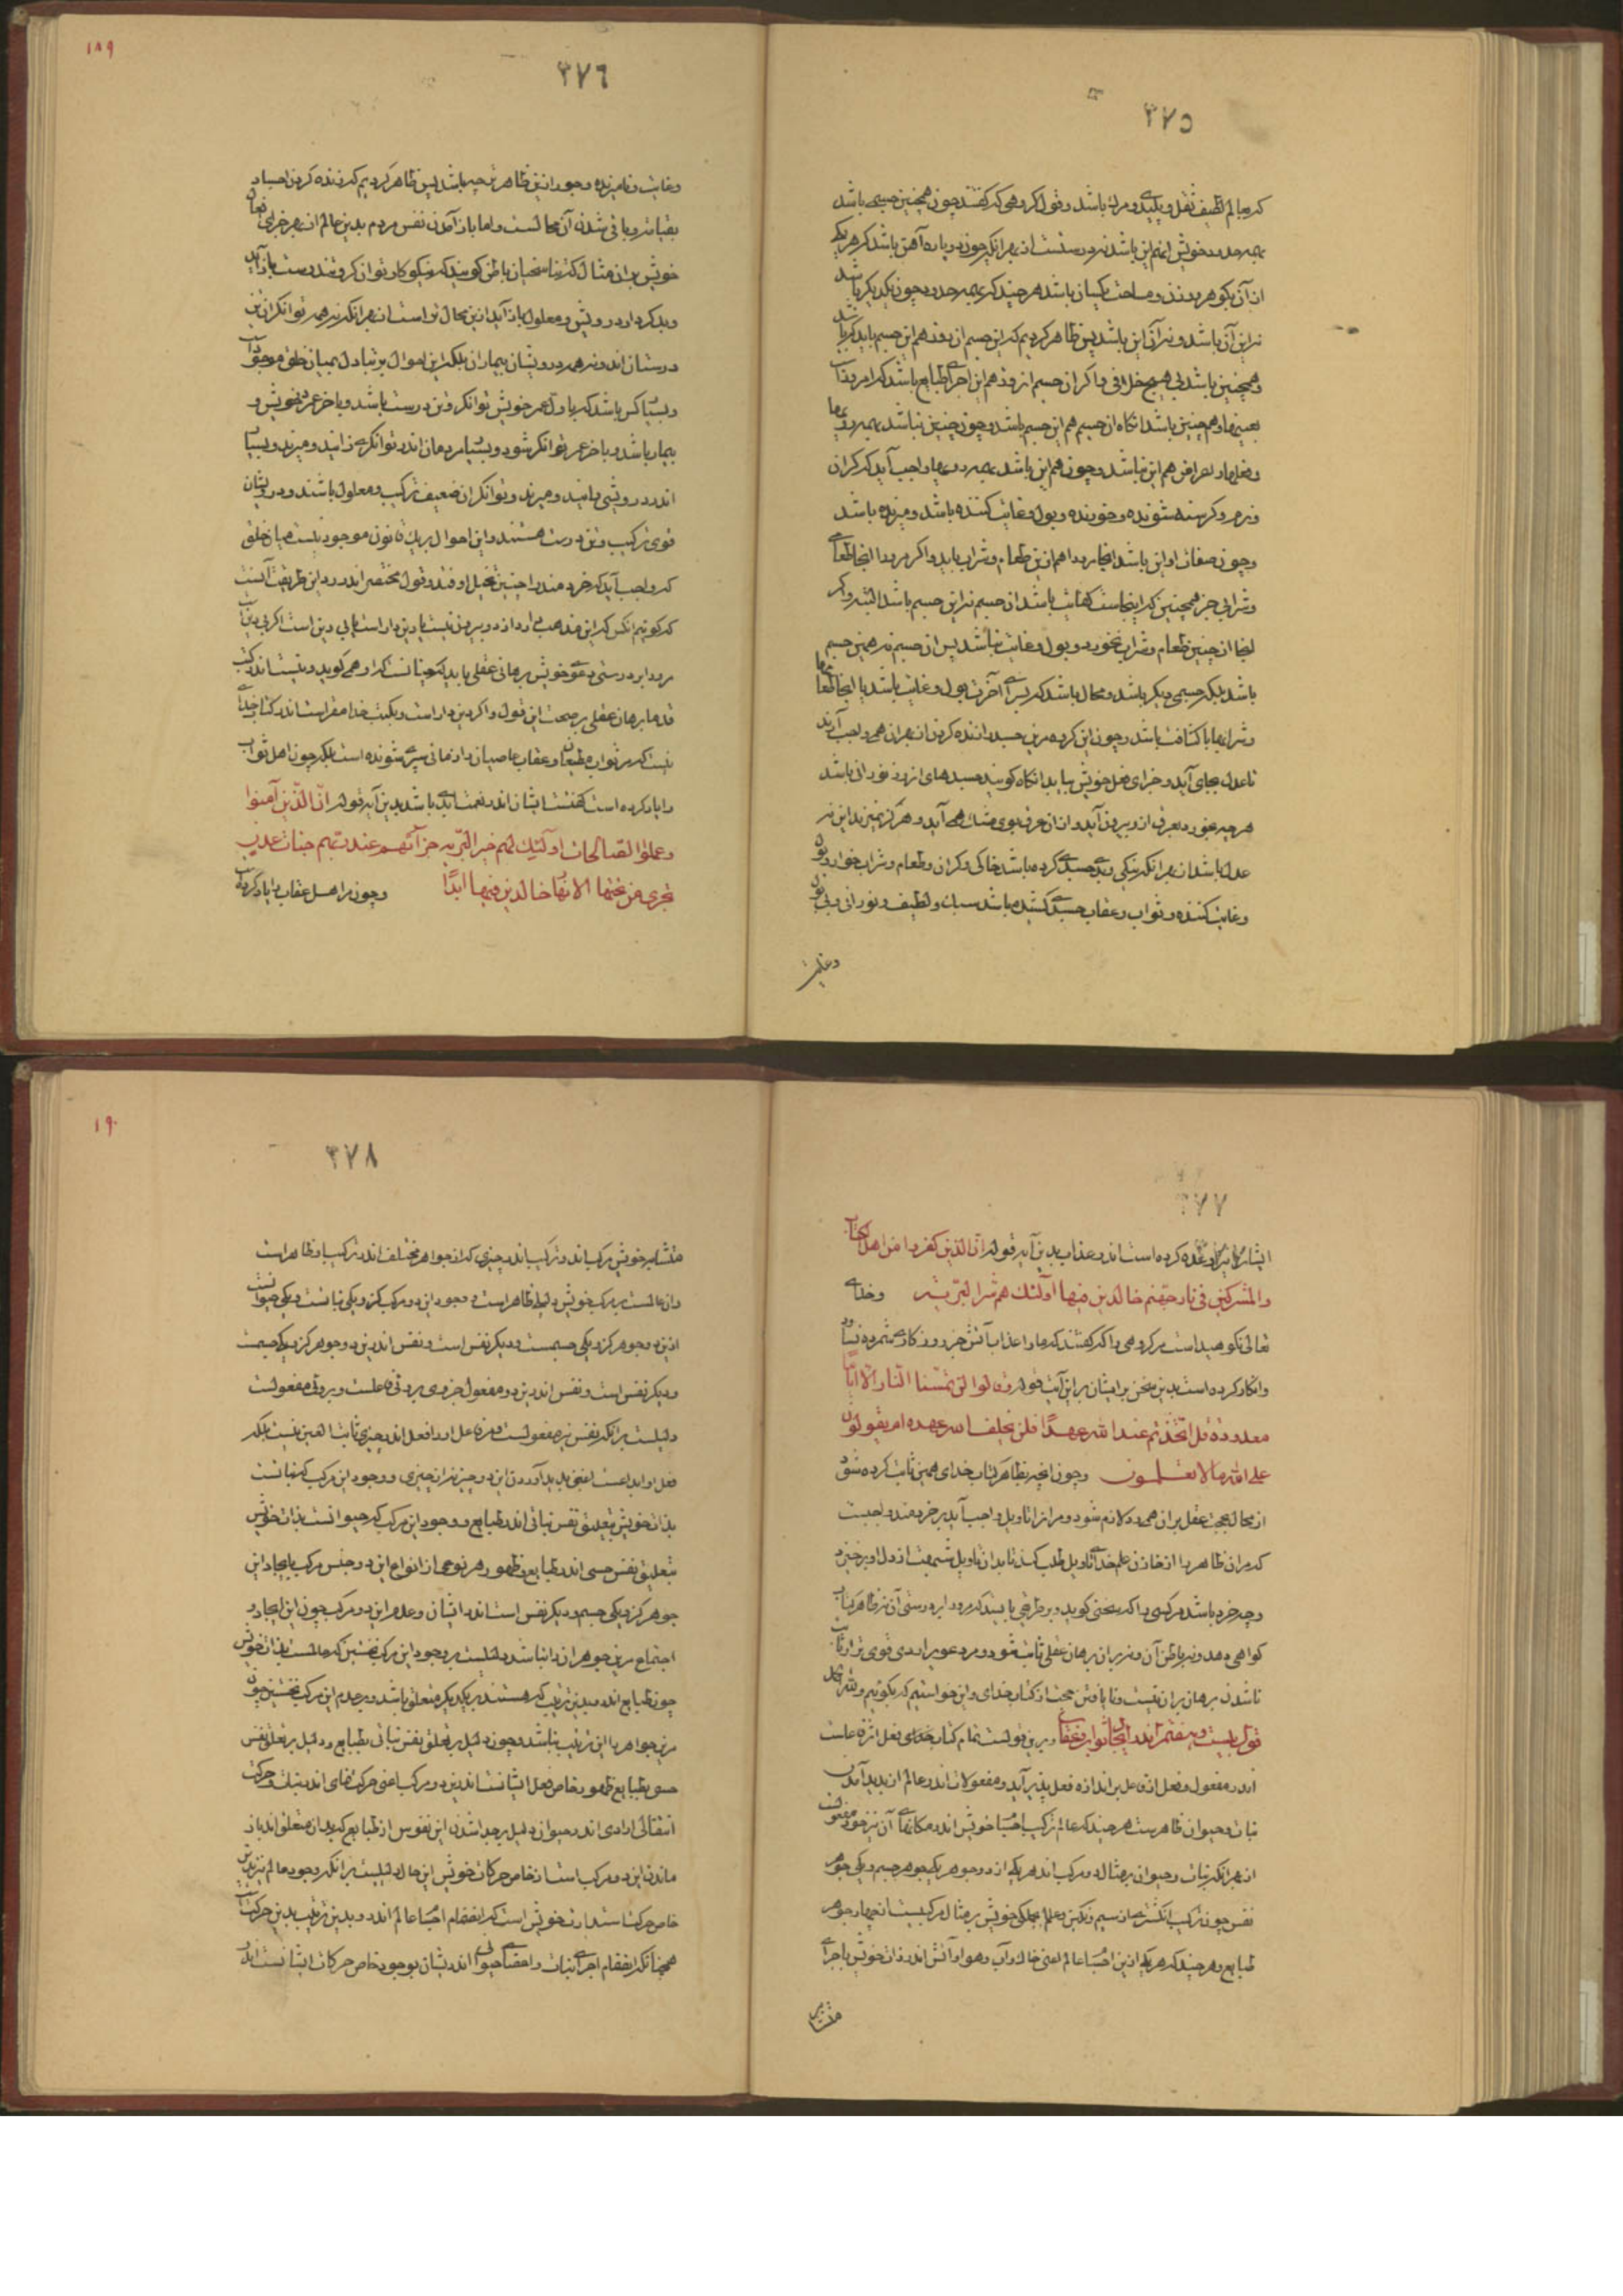 ٣٧٥
که بعالم لطیف ثقل و پلیدی و مرگ باشد و قول گروهی که گفتند چون همچنین جسمی باشد
بهمه حدود خویش آنهم این باشد نه درستست از بهر آنکه چون دو پاره آهن باشد که هر یکی
از آن بگوهر و وزن و مساحت یکسان باشد هر چند که بهمه حدود چون یکدیگر باشد
نه این آن باشد و نه آن این باشد پس ظاهر کردیم که این جسم آن روز هم این جسم باید که باشد
و همچنین باشد بی هیچ خلافی و اگر آن جسم آن روز هم این اجزای طبایع باشد که امروزست
بعینها و هم چنین باشد آنگاه آن جسم هم این جسم باشد و چون چنین نباشد بهمه رویها
و فعلها و اعراض هم این نباشد و چون هم این باشد بهمه رویها واجب آید که گران
و نرم و گرسنه شونده و خورنده و بول و غایت کننده باشد و میرنده باشد
و چون صفات او این باشد آنجا مرو را هم ازین طعام و شراب باید و اگر مرو را آنجا طعامی
و شرابی جز همچنین که اینجاست کفایت باشد آن جسم نه این جسم باشد البته و اگر
آنجا از چنین طعام و شراب نخورد و بول و غایت نباشد پس آن جسم نه همین جسم
باشد بلکه جسمی دیگر باشد و محال باشد که بسرای آخرت بول و غایت باشد یا آنجا طعامها
و شرابها با کثافت باشد و چون این کرده مرین جسد را زنده کردن از بهر آن همی واجب آرند
تا عدل بجای آید و جزای فعل خویش بیابد آنگاه گویند جسدهای آن روز نورانی باشد
هر چه بخورد بعرق ازو بیرون آید و از آن عرق بوی مشک همی آید و هرگز نمیرند این نه
عدل باشد از بهر آنکه نیکی و بدی جسدی کرده باشد خاکی و گران و طعام و شراب خوار و بول
و غایت کننده و ثواب و عقاب جسدی کشیده باشد سبک و لطیف و نورانی و بی بول
وغایت
١٨٩
٣٧٦
و غایت و نامیرنده و جور ازین ظاهرتر چه باشد پس ظاهر کردیم که زنده کردن اجساد
بقیامت و باقی شدن آن محالست و اما باز آمدن نفس مردم بدین عالم از بهر جزای فعل
خویش بر آن مثال که تناسخیان باطن گویند که نیکوکار توانگر و تندرست باز آید
و بدکردار درویش و معلول باز آید این محال تر است از بهر آنکه نه همه توانگران تن
درستان اند و نه همه درویشان بیماران بلکه این احوال بر تبادل بمیان خلق موجودست
و بسیا کس باشد که باول عمر خویش توانگر و تن درست باشد و باخر عمر درویش و
بیمار باشد و باخر عمر توانگر شود و بسیا مردمان اندر توانگری زایند و میرند و بسیا
اندر درویشی زایند و میرند و توانگران ضعیف ترکیب و معلول باشند و درویشان
قوی ترکیب و تن درست هستند و این احوال بر یک قانون موجود نیست میان خلق
که واجب آید که خردمند را چنین تخیل اوفتد و قول مختصر اندر رد این طریقت آنست
که گوئیم آنکس که این مذهب دارد از دو بیرون نیست یا دین دار است یا بی دین است اگر بی دینست
مرورا بر درستی دعوی خویش برهانی عقلی باید که چنانست که او همی گوید و نیست اندر کتب
قدما برهان عقلی بر صحت این قول و اگر دین دار است و بکتب خدا مقر است اندر کتاب خدای
نیست که مر ثواب مطیعان و عقاب عاصیان را زمانی سپری شونده است بلکه چون اهل ثواب
را یاد کرده است گفتست ایشان اندر نعمتا ابدی باشد بدین آیه قوله انّ الّذین آمنوا
وعملوا الصالحات اولئک هم خیر البریه جزائهم عند ربهم جنات عدن
تجری من تحتها الانهار خالدین فیها ابدًا وچون مر اهل عقاب را یاد کرد است
٣٧٧
ایشان را نیز وعده کرده است اندر عذاب بدین آیه قوله انّ الذین کفروا من اهل الکتاب
والمشرکین فی نار جهنم خالدین فیها اولئک هم شر البریّه وخدای
تعالی نکوهیده است مر گروهی را که گفتند که ما را عذاب آتش جز روزگاری شمرده نساود
وانکار کرده است بدین سخن بر ایشان بر این آیت قوله وقالوا لن تمسنا النار الا ایاما
معدودة قل اتخذتم عند الله عهدًا فلن یخلف الله عهده ام تقولون
علی الله ما لا تعلمون وچون آنچه بظاهر کتاب خدای همین ثابت کرده شود
از محال بحجت عقل بر آن همی رد لازم شود و مر آنرا تاویل واجب آید بر خردمند واجبست
که مر آن ظاهر را از خازن علم خدای تاویل طلب کند تا بدان تاویل شبهت از دل او برخیزد
و چه خرد باشد مر کسی را که سخنی گوید و بر طریقی بایستد که مرورا بر درستی آن نه ظاهر کتاب
گواهی دهد و نه باطن آن و نه بر آن برهان عقلی ثابت شود و مر دعوی را ردی قوی تر از ثابت
ناشدن برهان بران نیست و نایافتن حجت از کتاب خدای و این خواستیم که بگوئیم و لله الحمد
قول بیست و هفتم اندر ایجاب ثواب و عقاب ودرین قولست تمام کتاب خدای فعل اثر فاعلست
اندر مفعول و فعل از فاعل بر اندازه فعل پذیر آید و مفعولات اندر عالم از پدید آمدن
نبات و حیوان ظاهرست هر چند که عالم ترکیب اجسام خویش اندر مکانهای آن نیز خود مفعولست
از بهر آنکه نبات و حیوان بر مثال دو مرکب اند هر یکی از دو جوهر یکی جوهر جسم و یکی جوهر
نفس چون ترکیب انگشتری از سیم و نگین و عالم بجملگی خویش بر مثال مرکبیست از چهار جوهر
طبایع و هر چند که هر یکی ازین اجسام عالم اعنی خاک و آب و هوا و آتش اندر ذات خویش با اجزای
متشابه
١٩٠
٣٧٨
متشابه خویش مرکب اند و ترکیب اندر چیزی که از جواهر مختلف اند ترکیب او ظاهر است
و آن عالمست بر مرکب خویش دلیلی ظاهر است و وجود این دو مرکب کزو یکی نباتست و یکی حیوانست
ازین دو جوهر کزو یکی جسمست و دیگر نفس است و نفس اندرین دو جوهر کزو یکی جسمست
و دیگر نفس است و نفس اندرین دو مفعول جزوی بر وئی فاعلست و بروئی مفعولست
دلیلست بر آنکه نفس نیز مفعولست و مر فاعل او را فعل اندر چیزی ثابت الهین نیست بلکه
فعل او ابداعست اعنی پدید آوردن این دو چیز نه از چیزی و وجود این مرکب که نباتست
بذات خویش بتعلیق نفس نباتی اندر طبایع و وجود این مرکب که حیوانست بذات خویش
بتعلیق نفس حسی اندر طبایع و ظهور هر نوعی از انواع این دو جنس مرکب بایجاد این
جوهر کزو یکی جسم و دیگر نفس است اندر ایشان و عدم این دو مرکب چون این ایجاد و
اجتماع مرین جوهران را نباشد دلیلست بر وجود این مرکب نخستین که عالمست بذات خویش
چون طبایع اندر بدین ترتیب که هستند بر یکدیگر متعلق باشد و بر عدم این مرکب نخستین چون
مرین جواهر را این ترتیب نباشد و چون دلیل بر تعلق نفس نباتی بطبایع و دلیل بر تعلق نفس
حسی بطبایع ظهور خاص فعل ایشانست اندرین دو مرکب اعنی حرکت نمای اندر نبات و حرکت
انتقالی ارادی اندر حیوان و دلیل بر جدا شدن این نفوس از طبایع که بدان متعلق اند باز
ماندن این دو مرکب است از خاص حرکات خویش این حال دلیلیست بر آنکه وجود عالم نیز بدین
خاص حرکت استدارت خویش است که انضمام اجسام عالم اندرو بدین ترتیب بدین حرکتست
همچنانکه انضمام اجزای نبات و اعضای حیوانی اندر ایشان بوجود خاص حرکات ایشانست اندر